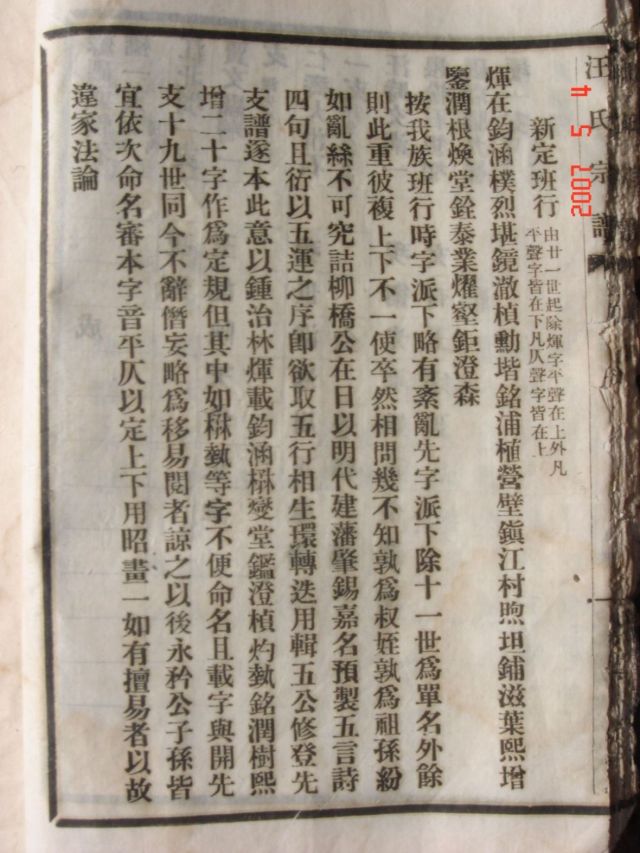 汪氏宗譜
新定班行
由廿一世起除煇字平聲在上外凡
平聲字皆在下凡仄聲字皆在上
煇在鈞涵樸烈堪鏡澈楨勳堦銘浦植營壁鎭江村煦坦鋪滋葉熙增
鑒潤根煥堂銓泰業燿壑鉅澄森
按我族班行時字派下略有紊亂先字派下除十一世爲單名外餘
則此重彼複上下不一使卒然相問幾不知孰爲叔姪孰爲祖孫紛
如亂絲不可究詰柳橋公在日以明代建藩肇錫嘉名預製五言詩
四句且衍以五運之序卽欲取五行相生環轉迭用輯五公修登先
支譜遂本此意以鍾治林煇載鈞涵楙爕堂鑑澄楨灼埶銘潤樹熙
增二十字作爲定規但其中如楙埶等字不便命名且載字與開先
支十九世同今不辭僭妄略爲移易閱者諒之以後永矜公子孫皆
宜依次命名審本字音平仄以定上下用昭畫一如有擅易者以故
違家法論
2007 5 4